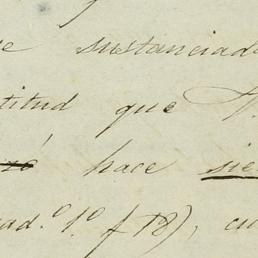 sustanciad
titud que
hace sie
ad.º 1.º f 18), cu